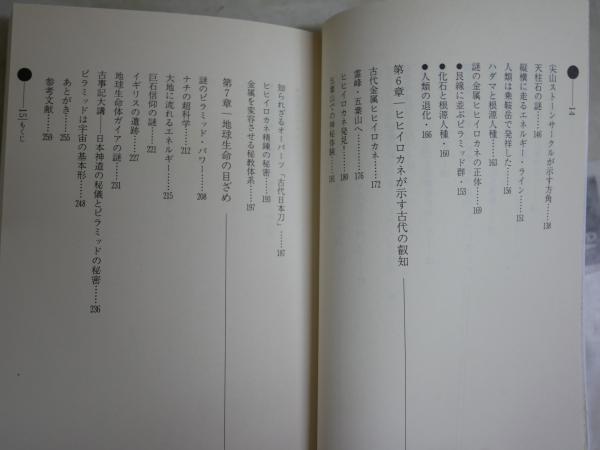 14
尖山ストーンサークルが示す方角……138
天柱石の謎……146
縦横に走るエネルギー・ライン……151
人類は乗鞍岳で発祥した……156
ハダマと根源人種……163
謎の金属ヒヒイロカネの正体……169
●艮線に並ぶピラミッド群・153
●化石と根源人種・160
●人類の退化・166
第6章―ヒヒイロカネが示す古代の叡知
古代金属ヒヒイロカネ……172
霊峰・五葉山へ……176
ヒヒイロカネ発見!……180
五葉山での神秘体験……181
知られざるオーパーツ「古代日本刀」……187
ヒヒイロカネ精錬の秘密……193
金属を変容させる秘教体系……197
第7章―地球生命の目ざめ
謎のピラミッド・パワー……208
ナチの超科学……212
大地に流れるエネルギー……215
巨石信仰の謎……221
イギリスの遺跡……227
地球生命体ガイアの謎……231
古事記大講――日本神道の秘儀とピラミッドの秘密……236
ピラミッドは宇宙の基本形……248
あとがき……255
参考文献……259
15 もくじ